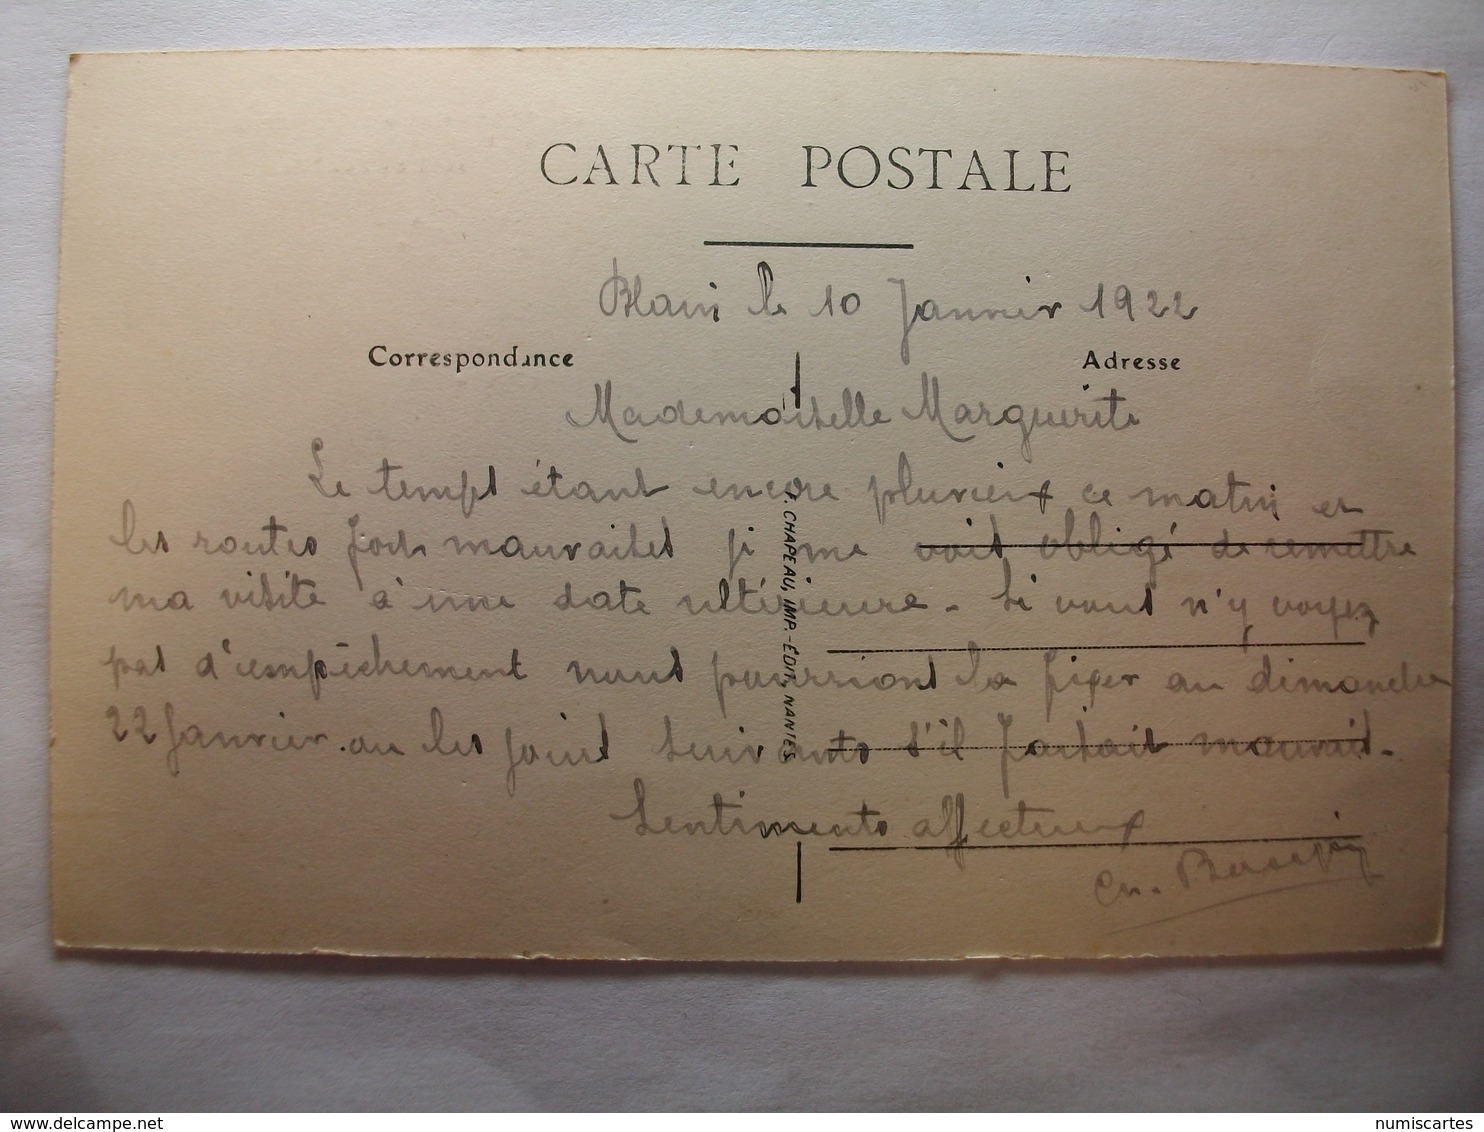 CARTE POSTALE
Blain le 10 Janvier 1922
Correspondance
Adresse
Mademoiselle Marguerite
Le temps étant encore pluvieux ce matin et
les routes fort mauvaises je me vois obligé de remettre
ma visite à une date ultérieure. Si vous n'y voyez
pas d'empêchement nous pourrions la fixer au dimanche
22 Janvier ou les jours suivants s'il faisait mauvais.
Sentiments affectueux
F. CHAPEAU, IMP.-ÉDIT., NANTES
delcampe.net
numiscartes